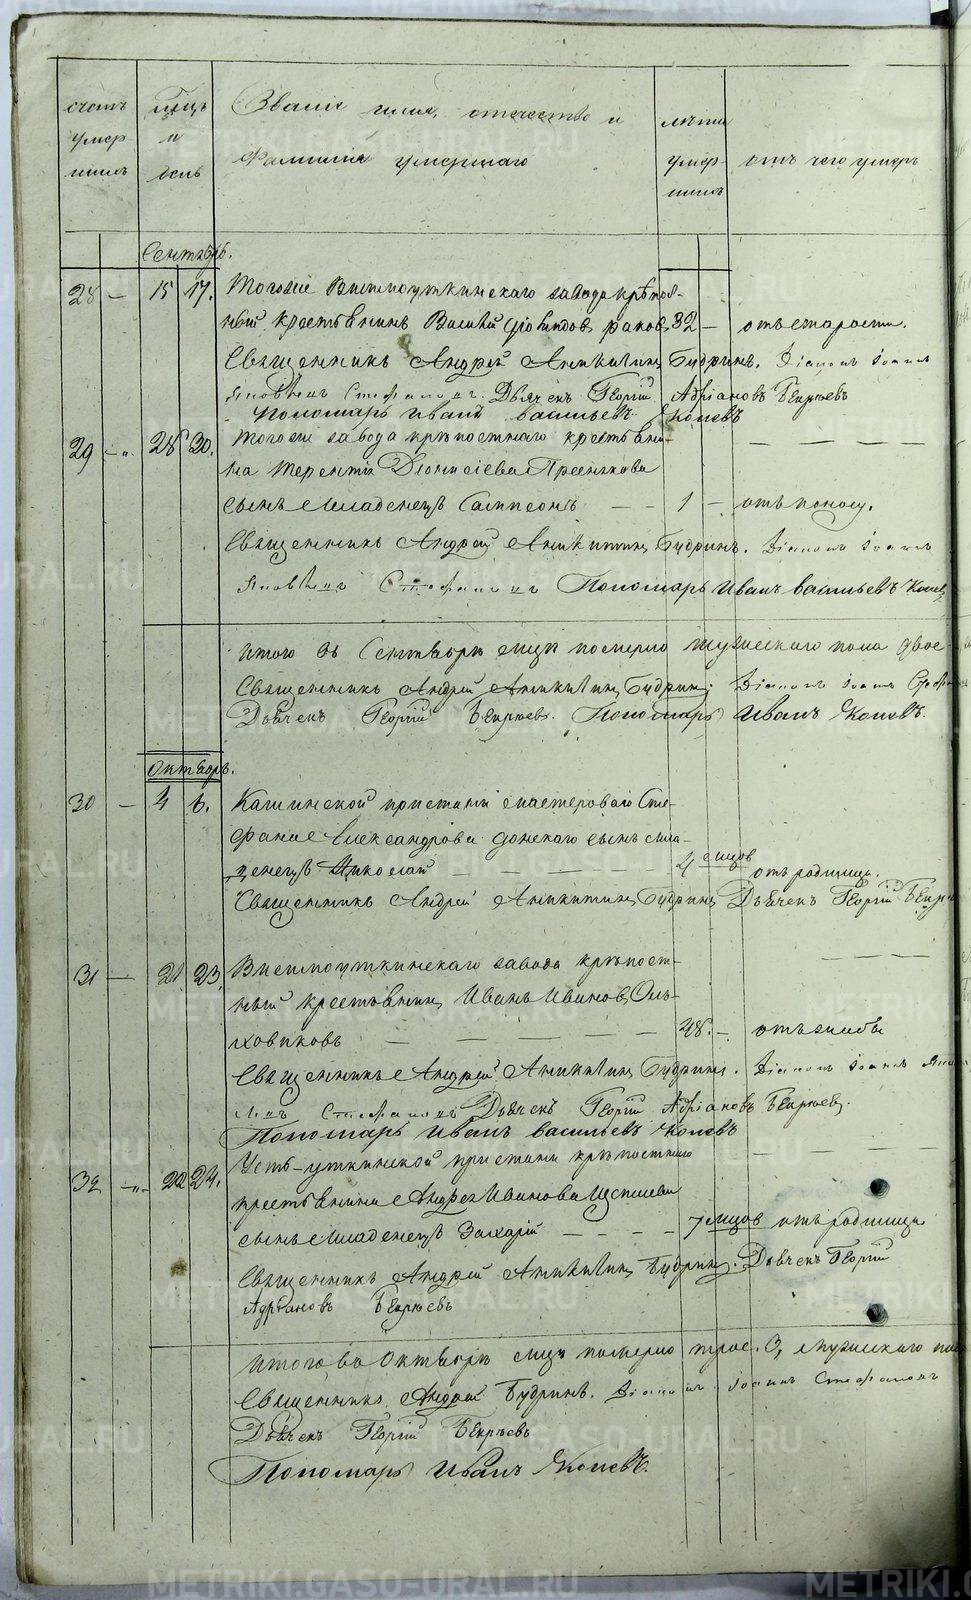 счетъ умер шихъ
мцъ и день
Званіе имя, отечество и
Фамилія умершаго
лѣта умер шихъ
отъ чего умеръ
Сентябрь.
28 — 15 17. Тогоже Висимоуткинскаго завода крѣпос-
ный крестьянинъ Василій 82 — отъ старости.
Священникъ Андрей Аникитинъ Будринъ. Діаконъ Іоаннъ
Яковлевъ Стефановъ. Дьячекъ Георгій Адріановъ Бекрѣевъ
Пономарь Иванъ Васильевъ Коневъ
29 — 28 30. Тогоже завода крѣпостнаго крестьяни-
на Терентія Діонисіева
сынъ младенецъ Сампсонъ — — 1 — отъ поносу.
Священникъ Андрей Аникитинъ Будринъ. Діаконъ Іоаннъ
Яковлевъ Стефановъ Пономарь Иванъ Васильевъ Коневъ
Итого въ Сентябрѣ мцѣ померло мужескаго пола двое
Священникъ Андрей Аникитинъ Будринъ. Діаконъ Іоаннъ
Дьячекъ Георгій Бекрѣевъ. Пономарь Иванъ Коневъ.
Октябрь.
30 — 4 6. Кашинской пристани мастероваго Сте-
фана Александрова Донскаго сынъ мла-
денецъ Николай — — — 2 мцовъ отъ родимца.
Священникъ Андрей Аникитинъ Будринъ Дьячекъ Георгій
31 — 21 23. Висимоуткинскаго завода крѣпост-
ный крестьянинъ Иванъ Ивановъ Оль-
ховиковъ — — — — 48. —
Священникъ Андрей Аникитинъ Будринъ. Діаконъ Іоаннъ
Стефановъ Дьячекъ Георгій Адріановъ Бекрѣевъ.
Пономарь Иванъ Васильевъ Коневъ
32 — 22 24. Усть-уткинской пристани крѣпостнаго
крестьянина Андрея Иванова
сынъ младенецъ Захарій — — — — 7 мцовъ отъ родимца
Священникъ Андрей Аникитинъ Будринъ. Дьячекъ Георгій
Адріановъ Бекрѣевъ
Итого въ Октябрѣ мцѣ померло трое. 3, мужескаго
Священникъ Андрей Будринъ. Діаконъ Іоаннъ Стефановъ
Дьячекъ Георгій Бекрѣевъ
Пономарь Иванъ Коневъ.
METRIKI.GASO-URAL.RU